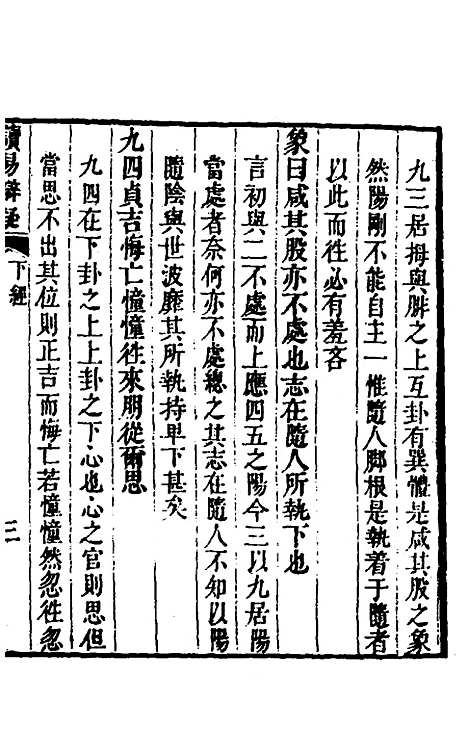 九三居拇與腓之上互卦有巽體是咸其股之象
然陽剛不能自主一惟隨人腳根是執着于隨者
以此而徃必有羞吝
象曰咸其股亦不處也志在隨人所執下也
言初與二不處而上應四五之陽今三以九居陽
當處者奈何亦不處總之其志在隨人不知以陽
隨陰與世波靡其所執持早下甚矣
九四貞吉悔亡憧憧徃來朋從爾思
九四在下卦之上上卦之下心也心之官則思但
當思不出其位則正吉而悔亡若憧憧然忽徃忽
讀易辯疑
下經
三